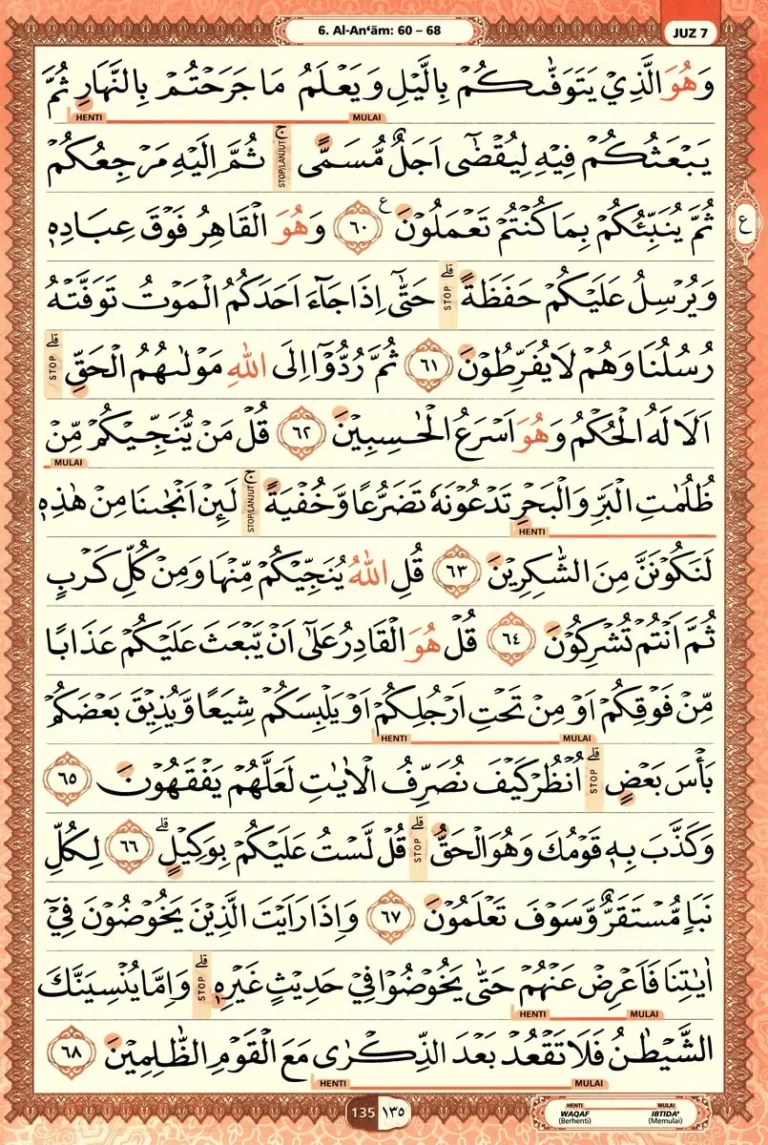 6. Al-An‘ām: 60 – 68
JUZ 7
وَهُوَ الَّذِيْ يَتَوَفّٰىكُمْ بِالَّيْلِ وَيَعْلَمُ مَا جَرَحْتُمْ بِالنَّهَارِ ثُمَّ
MULAI HENTI
يَبْعَثُكُمْ فِيْهِ لِيُقْضٰٓى اَجَلٌ مُّسَمًّىۚ ثُمَّ اِلَيْهِ مَرْجِعُكُمْ
STOP/LANJUT
ثُمَّ يُنَبِّئُكُمْ بِمَا كُنْتُمْ تَعْمَلُوْنَ ࣖ ٦٠ وَهُوَ الْقَاهِرُ فَوْقَ عِبَادِهٖ
ع
وَيُرْسِلُ عَلَيْكُمْ حَفَظَةًۗ حَتّٰٓى اِذَا جَاۤءَ اَحَدَكُمُ الْمَوْتُ تَوَفَّتْهُ
STOP
رُسُلُنَا وَهُمْ لَا يُفَرِّطُوْنَ ٦١ ثُمَّ رُدُّوْٓا اِلَى اللّٰهِ مَوْلٰىهُمُ الْحَقِّۗ
STOP
اَلَا لَهُ الْحُكْمُ وَهُوَ اَسْرَعُ الْحٰسِبِيْنَ ٦٢ قُلْ مَنْ يُّنَجِّيْكُمْ مِّنْ
MULAI
ظُلُمٰتِ الْبَرِّ وَالْبَحْرِ تَدْعُوْنَهٗ تَضَرُّعًا وَّخُفْيَةًۚ لَىِٕنْ اَنْجٰىنَا مِنْ هٰذِهٖ
HENTI STOP/LANJUT
لَنَكُوْنَنَّ مِنَ الشّٰكِرِيْنَ ٦٣ قُلِ اللّٰهُ يُنَجِّيْكُمْ مِّنْهَا وَمِنْ كُلِّ كَرْبٍ
ثُمَّ اَنْتُمْ تُشْرِكُوْنَ ٦٤ قُلْ هُوَ الْقَادِرُ عَلٰٓى اَنْ يَّبْعَثَ عَلَيْكُمْ عَذَابًا
مِّنْ فَوْقِكُمْ اَوْ مِنْ تَحْتِ اَرْجُلِكُمْ اَوْ يَلْبِسَكُمْ شِيَعًا وَّيُذِيْقَ بَعْضَكُمْ
MULAI HENTI
بَأْسَ بَعْضٍۗ اُنْظُرْ كَيْفَ نُصَرِّفُ الْاٰيٰتِ لَعَلَّهُمْ يَفْقَهُوْنَ ٦٥
STOP
وَكَذَّبَ بِهٖ قَوْمُكَ وَهُوَ الْحَقُّۗ قُلْ لَّسْتُ عَلَيْكُمْ بِوَكِيْلٍۗ ٦٦ لِكُلِّ
STOP
نَبَاٍ مُّسْتَقَرٌّ وَّسَوْفَ تَعْلَمُوْنَ ٦٧ وَاِذَا رَاَيْتَ الَّذِيْنَ يَخُوْضُوْنَ فِيْٓ
اٰيٰتِنَا فَاَعْرِضْ عَنْهُمْ حَتّٰى يَخُوْضُوْا فِيْ حَدِيْثٍ غَيْرِهٖۗ وَاِمَّا يُنْسِيَنَّكَ
MULAI HENTI STOP
الشَّيْطٰنُ فَلَا تَقْعُدْ بَعْدَ الذِّكْرٰى مَعَ الْقَوْمِ الظّٰلِمِيْنَ ٦٨
MULAI HENTI
135 ١٣٥
HENTI MULAI
WAQAF IBTIDA'
(Berhenti) (Memulai)